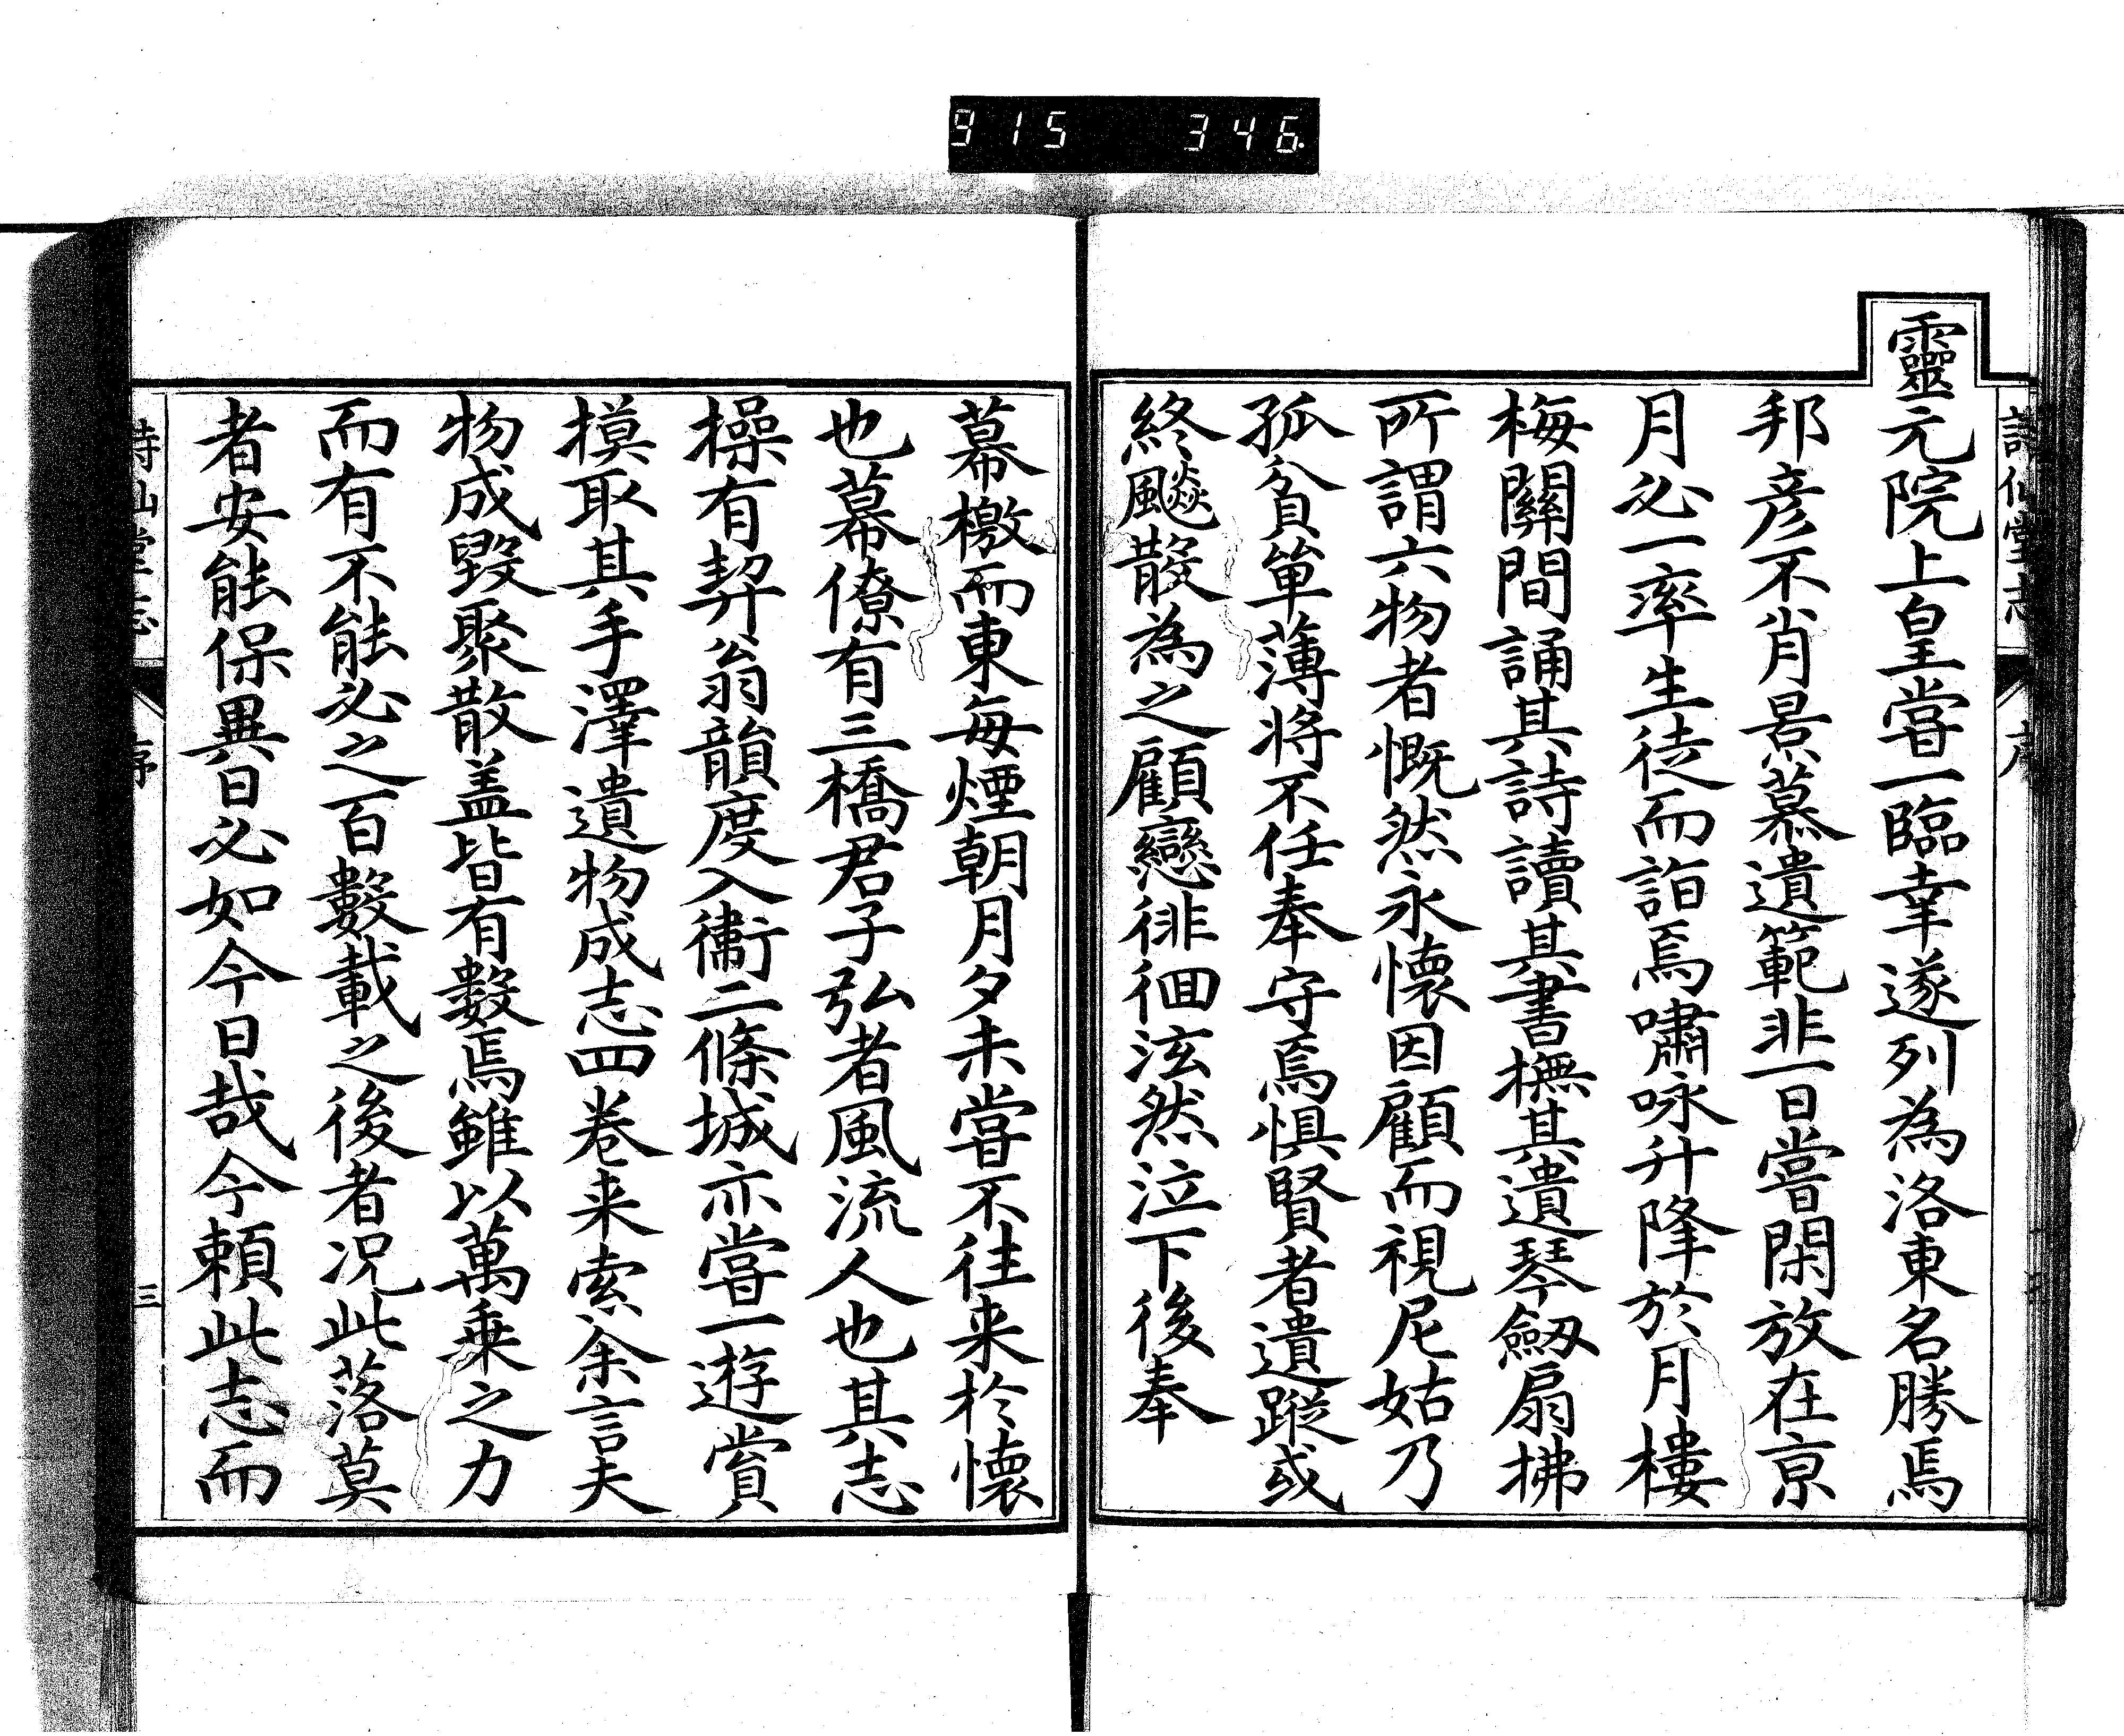 915 346
詩仙堂志 序
靈元院上皇嘗一臨幸遂列為洛東名勝焉
邦彥不肖景慕遺範非一日嘗閑放在京
月必一率生徒而詣焉嘯咏升降於月樓
梅關間誦其詩讀其書撫其遺琴劔扇拂
所謂六物者慨然永懷因顧而視尼姑乃
孤貧單薄將不任奉守焉惧賢者遺蹤或
終飈散為之顧戀徘徊泫然泣下後奉
幕檄而東每煙朝月夕未嘗不往来於懷
也幕僚有三橋君子弘者風流人也其志
操有契翁韻度入衞二條城亦嘗一遊賞
摸取其手澤遺物成志四巻来索余言夫
物成毀聚散盖皆有數焉雖以萬乗之力
而有不能必之百數載之後者况此落莫
者安能保異日必如今日哉今頼此志而
詩仙堂志 序 三